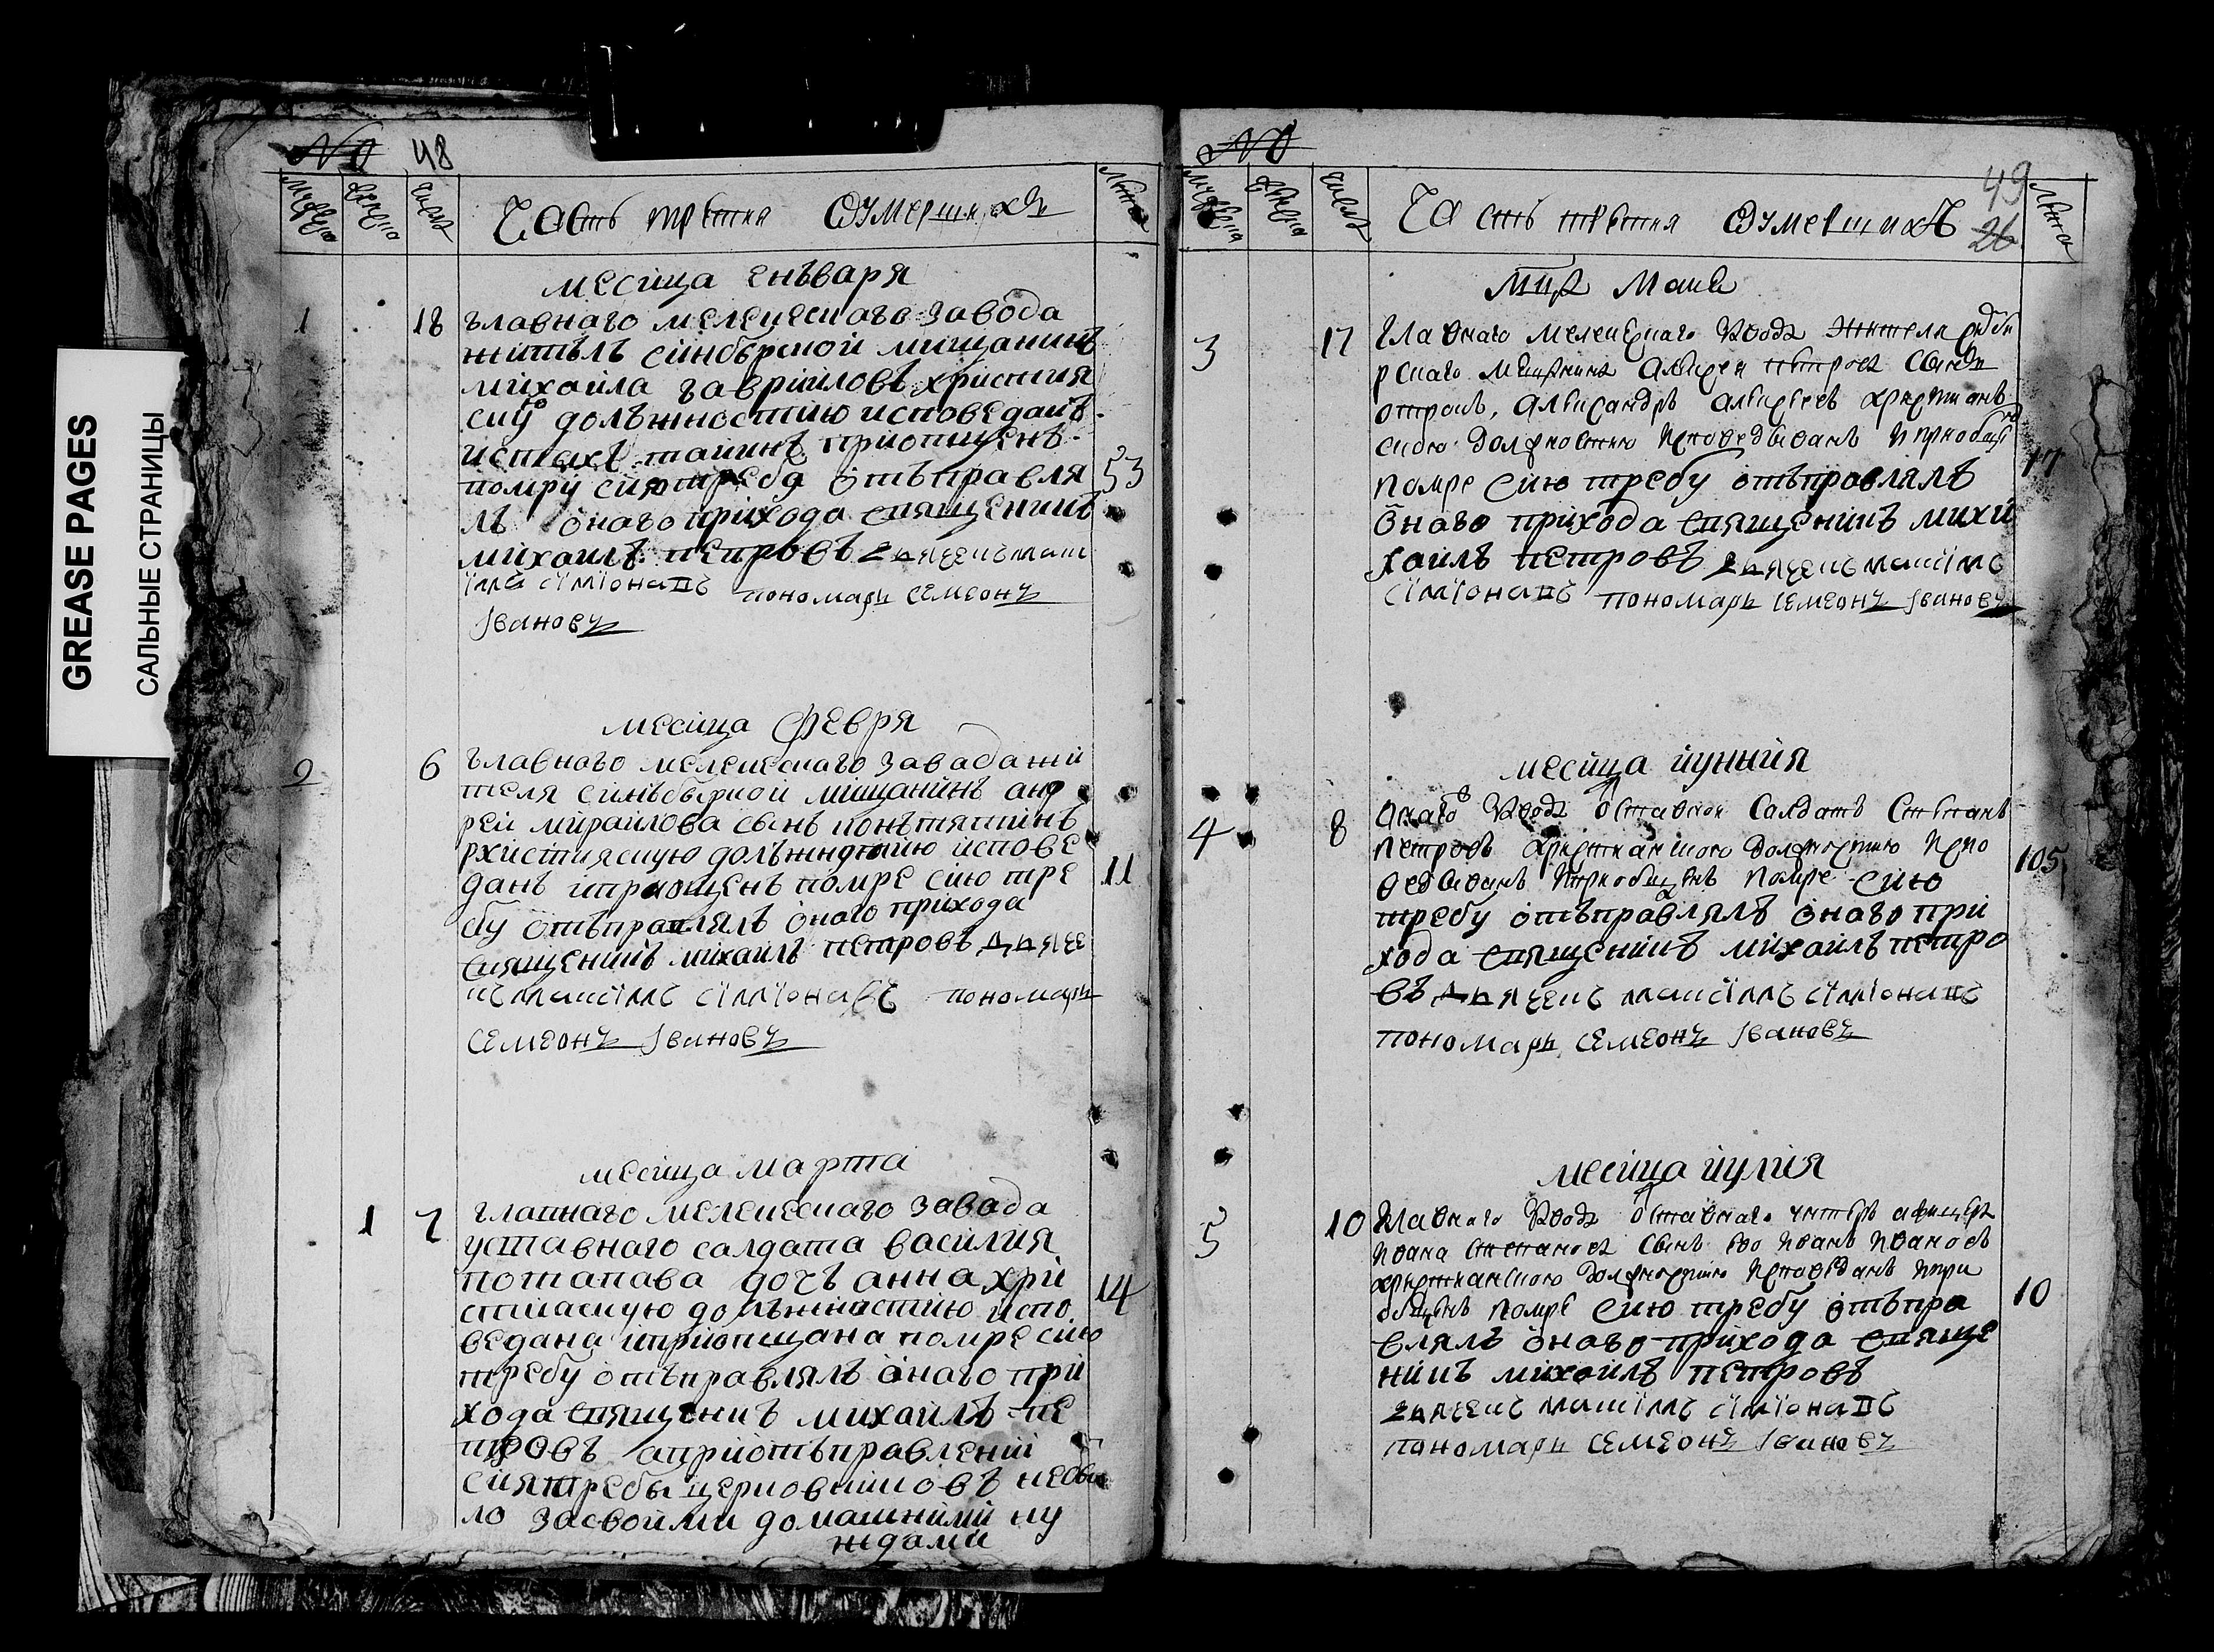 GREASE PAGES
САЛЬНЫЕ СТРАНИЦЫ
№ 48
Часть третия О умерших
месеца енъваря
1 18 главнаго мелекескаго завода
житель синберской мищанинъ
михаила гаврииловъ христия
скую долъжностию исповеданъ
помру сию требу отъправля 53
лъ онаго прихода священикъ
михаилъ петровъ дьячекъ макси
имъ симионавъ пономарь семеонъ
Iвановъ
месеца февря
2 6 главнаго мелекескаго завада жи
теля синъберкои мищанинъ анд
реи мираилова сынъ
рхистияскую долъжностию испове
данъ iприопщенъ помре сию тре 11
бу отъправлялъ онаго прихода
священикъ михаилъ петровъ дьяче
къ максiмъ сiмiонавъ пономарь
семеонъ Iвановъ
месеца марта
1 2 главнаго мелекескаго завада
уставнаго салдата василия
потапава дочъ анна хри
стиаскую долъжностию испо 14
ведана iприопщана помре сию
требу отъправлялъ онаго при
хода священикъ михаилъ пе
тровъ априотъправлении
сиятребы церковниковъ небы
ло засвоими домашними ну
ждами
№
49
26
Часть третия О умершихъ
Мца Маия
3 17 Главнаго мелекескаго завода жителя синби
рскаго мещанина Алексея петрова сынъ
отрокъ, александръ алексеевъ христианъ
скою должностию исповедыванъ и приобщенъ 17
помре сию требу отъправлялъ
онаго прихода священикъ михи
хаилъ петровъ дьячекъ максiмъ
сiмiонавъ пономарь семеонъ Iвановъ
месяца июнния
4 8 Онаго завода отставной салдатъ степанъ
петровъ христианскою должностию испо 105
ведыванъ и приобщенъ помре сию
требу отъправлялъ онаго при
хода священикъ михаилъ петро
въ дьячекъ максiмъ сiмiонавъ
пономарь семеонъ Iвановъ
месяца июлия
5 10 Главнаго завода отставнаго унтеръ афицера
ивана степанова сынъ ево иванъ ивановъ
христианскою должностию исповеданъ и при
общенъ помре сию требу отъпра 10
влялъ онаго прихода свяще
никъ михаилъ петровъ
дьячекъ максiмъ сiмiонавъ
пономарь семеонъ Iвановъ